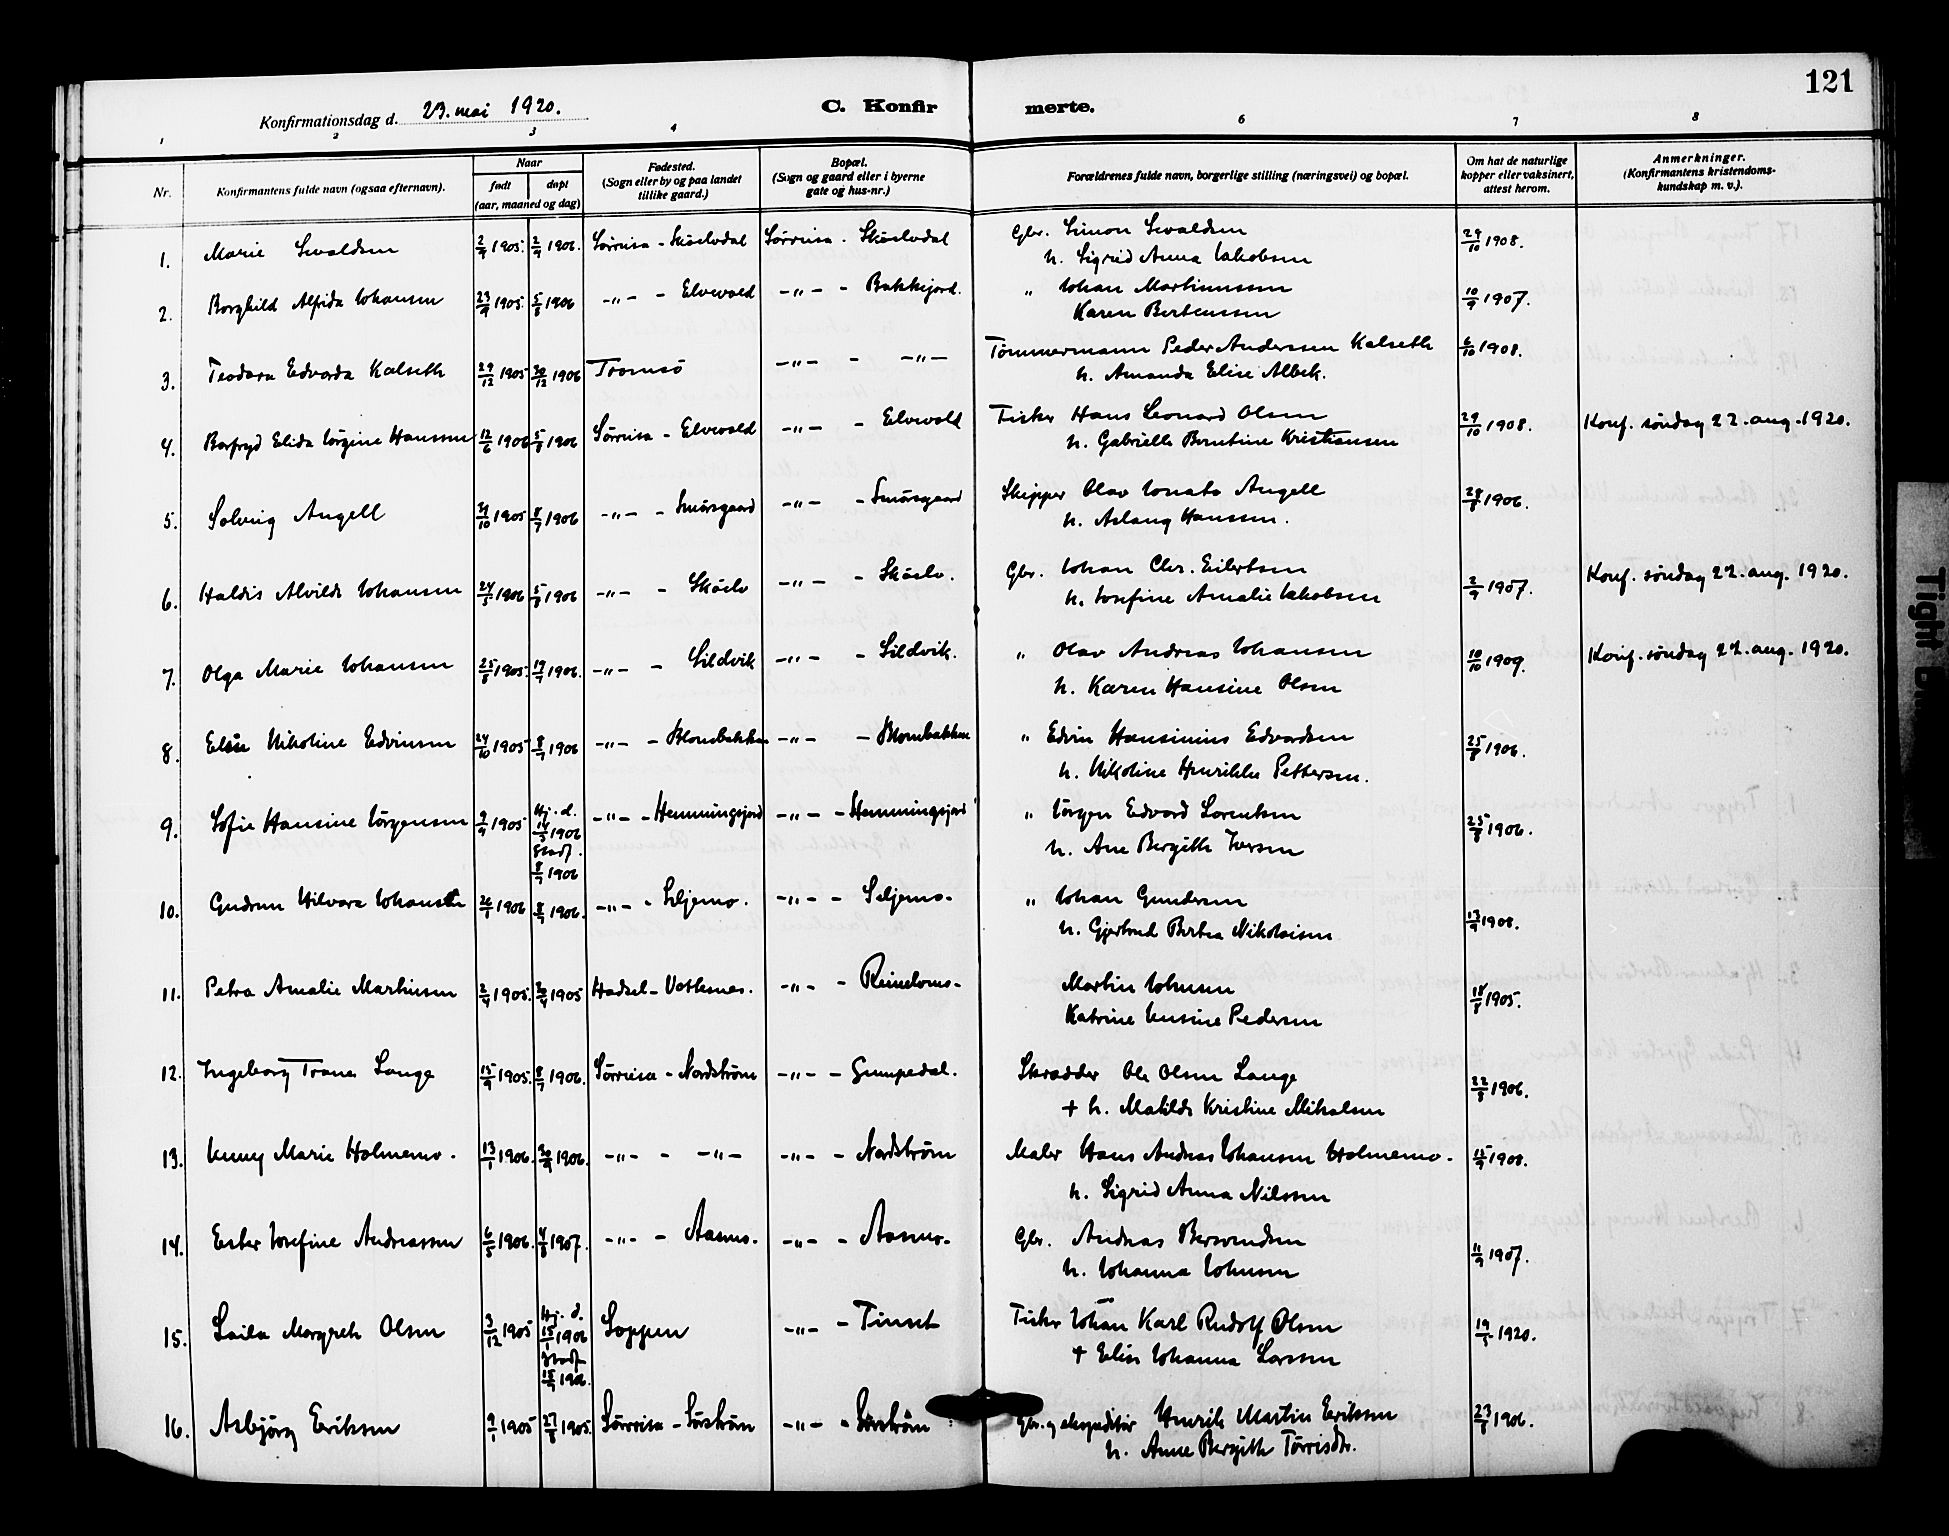 121
Konfirmationsdag d. 23. mai 1920.
C. Konfir merte.
1 2 3 4 6 7 8
Nr.
Konfirmantens fulde navn (ogsaa efternavn).
Naar
født døpt
(aar, maaned og dag)
Fødested.
(Sogn eller by og paa landet
tillike gaard.)
Bopæl.
(Sogn og gaard eller i byerne
gate og hus-nr.)
Forældrenes fulde navn, borgerlige stilling (næringsvei) og bopæl.
Om hat de naturlige
kopper eller vaksinert,
attest herom.
Anmerkninger.
(Konfirmantens kristendoms-
kundskap m. v.).
1. Marie Sivaldsen 2/9 1905. 2/9 1906. Sørreisa - Skøelvdal Sørreisa - Skøelvdal Gbr. Simon Sivaldsen 24/10 1908.
h. Sigrid Anna Jakobsen
2. Borghild Alfida Johansen 23/9 1905 5/8 1906 -"- - Elvevold -"- - Bakkejord. " Johan Martinussen 10/9 1907.
Karen Berteussen
3. Teodora Edvarda Kalseth 29/12 1905 30/12 1906 Tromsö -"- - -"- Tømmermann Peder Anderssen Kalseth 6/10 1908.
h. Amanda Elise Albek.
4. Borfryd Elida Jørgine Hanssen 12/6 1906 5/8 1906 Sørreisa - Elvevold -"- - Elvevold Fisker Hans Leonard Olsen 29/10 1908. Konf. søndag 22. aug. 1920.
h. Gabrielle Berntine Kristiansen
5. Solveig Angell 31/10 1905 8/7 1906 -"- - Smørsgaard -"- - Smørsgaard Skipper Olav Tonato Angell 28/8 1906.
h. Aslaug Hanssen.
6. Haldis Alvilde Johansen 24/5 1906 5/8 1906 -"- - Skøelv -"- - Skøelv. Gbr. Johan Chr. Eilertsen 2/9 1907. Konf. søndag 22. aug. 1920.
h. Josefine Amalie Jakobsen
7. Olga Marie Johansen 25/8 1905. 19/7 1906. -"- - Sildvik -"- - Sildvik. " Olav Andreas Johansen 10/10 1909. Konf. søndag 22. aug. 1920.
h. Karen Hansine Olsen
8. Elise Nikoline Edvinsen 24/10 1905 8/7 1906 -"- - Blombakken -"- - Blombakken " Edvin Hansinius Edvardsen 25/8 1906.
h. Nikoline Henrikke Pettersen.
9. Sofie Hansine Jörgensen 9/9 1905 Hj. d. 14/3 1906 Stadf. 8/7 1906 -"- - Hemmingsjord -"- - Hemmingsjord " Jörgen Edvard Lorentsen 25/8 1906.
h. Ane Bergithe Iversen
10. Gudrun Hilvara Johansen 26/1 1906 8/7 1906. -"- - Seljemo. -"- - Seljemo. " Johan Gundersen 13/9 1908.
h. Gjertrud Bertea Nikolaisen
11. Petra Amalie Martinsen 2/4 1905. 30/4 1905 Hadsel - Vottesnes. -"- - Reinelvmo. Martin Johnsen 18/8 1905.
Katrine Pedersen
12. Ingeborg Trane Lange 15/9 1905. 8/7 1906. Sørreisa - Nordstrøm -"- - Gumpedal. Skrædder Ole Olsen Lange 22/8 1906.
+ h. Matilde Kristine Mikalsen
13. Jenny Marie Holmemo. 13/1 1906. 30/9 1906. -"- - -"- -"- - Nordstrøm Maler Hans Andreas Johansen Holmemo. 15/9 1908.
h. Sigrid Anna Nilssen
14. Ester Josefine Andreassen 6/5 1906. 4/8 1907. -"- - Aasmo. -"- - Aasmo. Gbr. Andreas Bersvendsen 11/9 1907.
h. Johanna Johnsen
15. Laila Margreth Olsen 3/12 1905 Hj. d. 15/1 1906 Stadf. 18/9 1906. Loppen -"- - Finset Fisker Johan Karl Rudolf Olsen 19/5 1920.
+ Elise Johanna Larssen
16. Asbjørg Eriksen 9/1 1905 27/8 1905. Sørreisa - Sørstrøm -"- - Sørstrøm Gbr. og ekspeditør Henrik Martin Eriksen 23/8 1906.
h. Anne Bergithe Tørrisdtr.
Tight